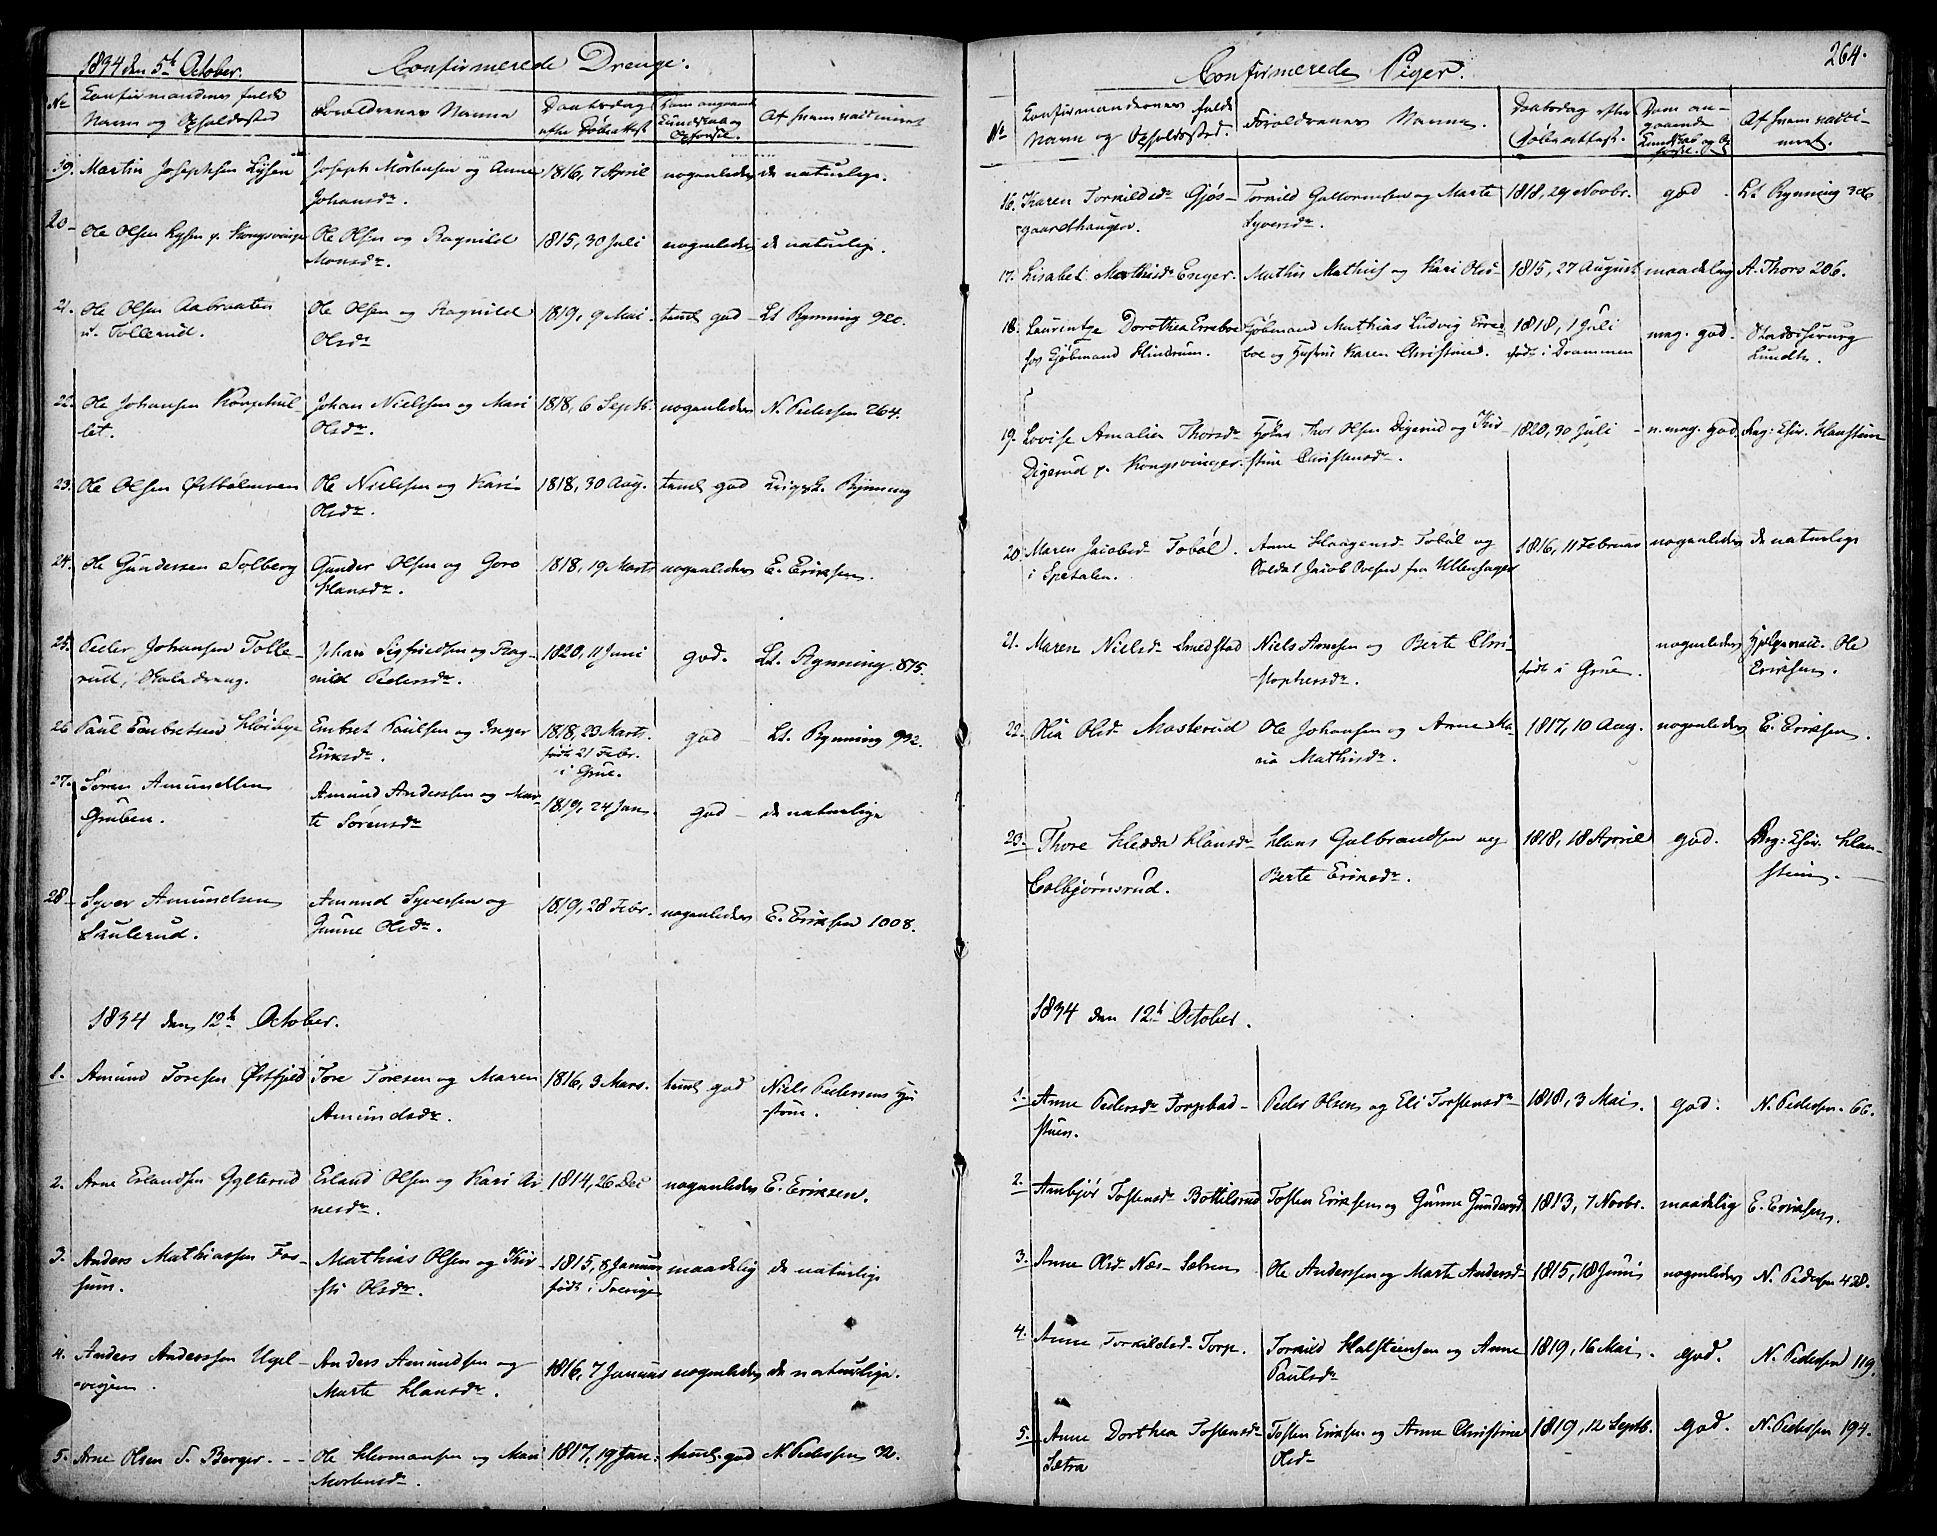 1834 den 5te October.
Confirmerede Drenge.
No
Confirmandens fulde
Navn og Opholdssted
Forældrenes Navne
Daabsdag
efter Døbeattest
Dom angaaende
Kundskab og
Opførsel.
Af hvem vaccineret
19. Martin Josephsen Lysen
Joseph Mortensen og Anne
Johansdr.
1816, 7 April
nogenledes
de naturlige.
20. Ole Olsen Lysen p. Kongsvinger
Ole Olsen og Ragnild
Monsdr.
1815, 30 Juli
nogenledes
de naturlige.
21. Ole Olsen Aabraaten
u. Tollerud.
Ole Olsen og Ragnild
Olsdr.
1819, 9 Mai.
teml. god
Lt. Rynning 920.
22. Ole Johansen Kroghul-
let.
Johan Nielsen og Mari
Olsdr.
1818, 6 Septb.
nogenledes
N. Pedersen 264.
23. Ole Olsen Østbølmoen
Ole Nielsen og Kari
Olsdr.
1818, 30 Aug.
teml. god
Rynning
24. Ole Gundersen Solberg
Gunder Olsen og Goro
Hansdr.
1818, 19 Marts
nogenledes
E. Eriksen.
25. Peder Johansen Tolle-
rud, Skoledreng.
Johan Sigfriedsen og Rag-
nild Pedersdr.
1820, 11 Juni
god.
Lt. Rynning 875.
26. Paul Embretsen Kløibye
Embret Paulsen og Inger
Eriksdr.
1818, 23 Marts.
født 21 Febr.
i Grue.
god
Lt. Rynning 992.
27. Søren Amundsen
Gruben.
Amund Anderssen og Mar-
te Sørensdr
1819, 24 Jan.
god
de naturlige
28. Syver Amundsen
Saulerud.
Amund Syversen og
Gunne Olsdr.
1819, 28 Febr.
nogenledes
E. Eriksen 1008.
1834 den 12te October.
1. Amund Toresen Østfjeld
Tore Toresen og Maren
Amundsdr.
1816, 3 Mars.
teml. god
Niels Pedersens Hu-
strue.
2. Arne Erlandsen Gylterud
Erland Olsen og Kari Ar-
nesdr.
1814, 26 Dec
nogenledes
E. Eriksen.
3. Anders Mathiassen Fos-
sum.
Mathias Olsen og Kir-
sti Olsdr.
1815, 8 Januar
født i Sverige
maadelig
de naturlige
4. Anders Anderssen Ugel-
vejen.
Anders Amundsen og
Marte Hansdr.
1816, 7 Januar
nogenledes
de naturlige.
5. Arne Olsen S. Berger.
Ole Hermansen og Mari
Mortensdr.
1817, 19 Jan.
teml. god
N. Pedersen 32.
264.
Confirmerede Piger.
No
Confirmandernes fulde
Navn og Opholdssted.
Forældrenes Navne.
Daabsdag efter
Døbeattest.
Dom an-
gaaende
Kundskab og Op-
førsel.
Af hvem vacci-
neret.
16. Karen Tormildsdr Gjøs-
gaardhaugen.
Tormild Guttormsen og Marte
Syversdr.
1818, 29 Novbr.
god
Lt Rynning 306
17. Lisabet Mathisdr Enger.
Mathis Mathis. og Kari Olsdr
1815, 27 August
maadelig
A. Thors 206.
18. Laurentze Dorothea Erreboe
hos Kjøbmand Hindrum.
Kjøbmand Mathias Ludvig Erre-
boe og Hustru Karen Christine.
1818, 1 Juli
født i Drammen
meg. god.
Stadschirurg
Lundt.
19. Lovise Amalie Thorsdr
Digerud p. Kongsvinger.
Thor Olsen Digerud og Kir-
stine Christensdr.
1820, 30 Juli
n. meg. god.
Reg: Chir. Haustein
20. Maren Jacobsdr Tobøl.
i Spetalen.
Anne Haagensdr Tobøl og
Soldat Jacob Ovesen fra Ullensager
1816, 11 Februar
nogenledes
de naturlige
21. Maren Nielsdr Smedstad
Niels Arnesen og Berte Chri-
stophersdr.
født i Grue.
nogenledes
Hjelpevacc. Ole
Eriksen.
22. Olia Olsdr Masterud
Ole Johansen og Anne Ma-
ria Mathisdr.
1817, 10 Aug.
nogenledes
E. Eriksen.
23. Thore Hedda Hansdr
Colbjørnsrud.
Hans Gulbrandsen og
Berte Eriksdr.
1818, 18 April
god.
Reg: Chir. Hau-
stein.
1834 den 12te October.
1. Anne Pedersdr Torpbad-
stuen.
Peder Olsen og Eli Torstensdr
1818, 3 Mai.
god.
N. Pedersen. 66.
2. Annbjør Tostensdr Bottilsrud
Tosten Eriksen og Gunne Gundersdr
1813, 7 Novbr.
maadelig
E. Eriksen.
3. Anne Olsdr Næs Sætren
Ole Anderssen og Marte Andersdr
1815, 18 Juni
nogenledes
N. Pedersen 428.
4. Anne Tormildsdr Torp.
Tormild Halsteinsen og Anne
Paulsdr
1819, 16 Mai.
god.
N. Pedersen 119.
5. Anne Dorthea Tostensdr
Sætra
Tosten Eriksen og Anne Christine
Olsdr
1819, 12 Septb.
god.
N. Pedersen 194.